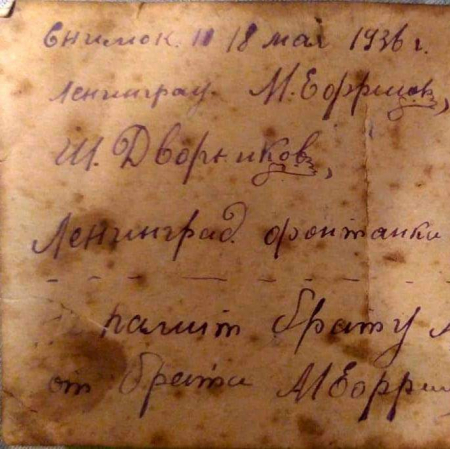 Снимок. 18 мая 1936 г.
Ленинград. М. Еффимов,
Ш. Дворников,
Ленинград. фонтанки
память брату
от брата М Еффи